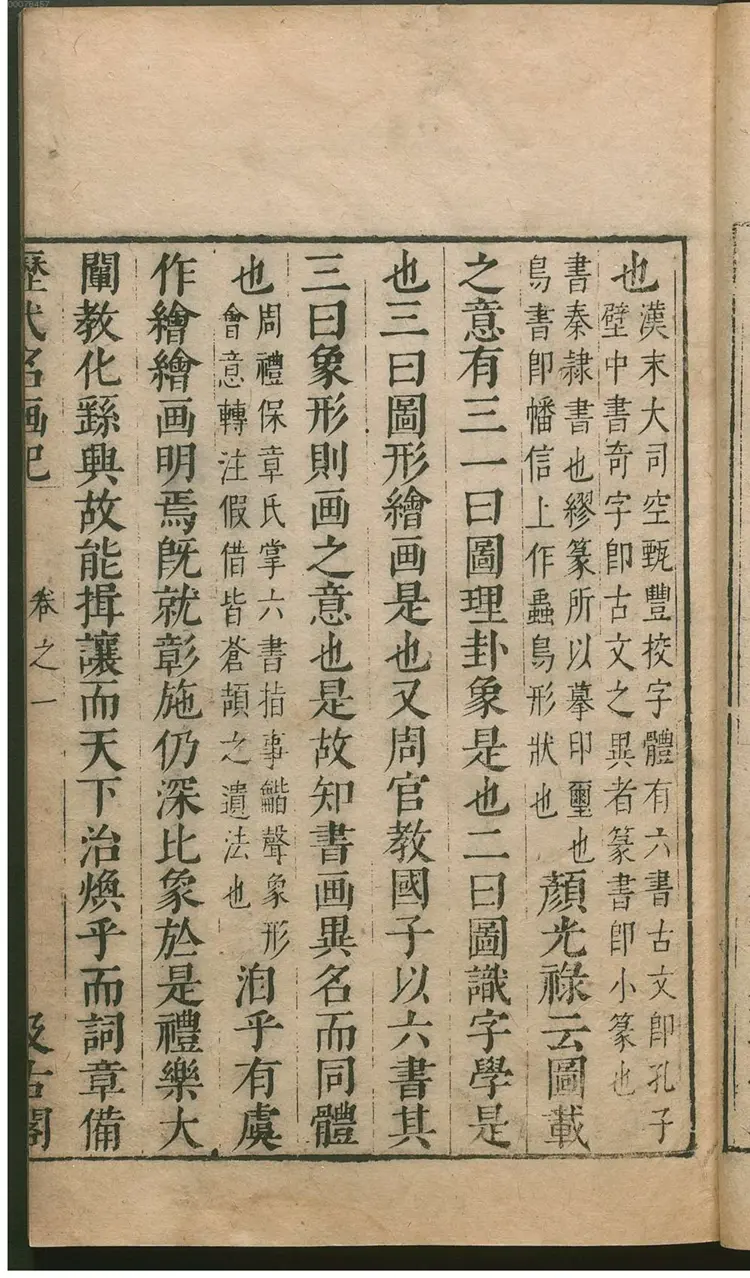 00078457
也漢末大司空甄豐挍字體有六書古文卽孔子
壁中書奇字卽古文之異者篆書卽小篆也
書秦隷書也繆篆所以摹印璽也
鳥書卽幡信上作蟲鳥形狀也
顏光祿云圖載
之意有三一曰圖理卦象是也二曰圖識字學是
也三曰圖形繪画是也又周官教國子以六書其
三曰象形則画之意也是故知書画異名而同體
也周禮保章氏掌六書指事龤聲象形
會意轉注假借皆蒼頡之遺法也
洎乎有虞
作繪繪画明焉旣就彰施仍深比象於是禮樂大
闡教化繇興故能揖讓而天下治煥乎而詞章備
歷代名画記 卷之一 汲古閣